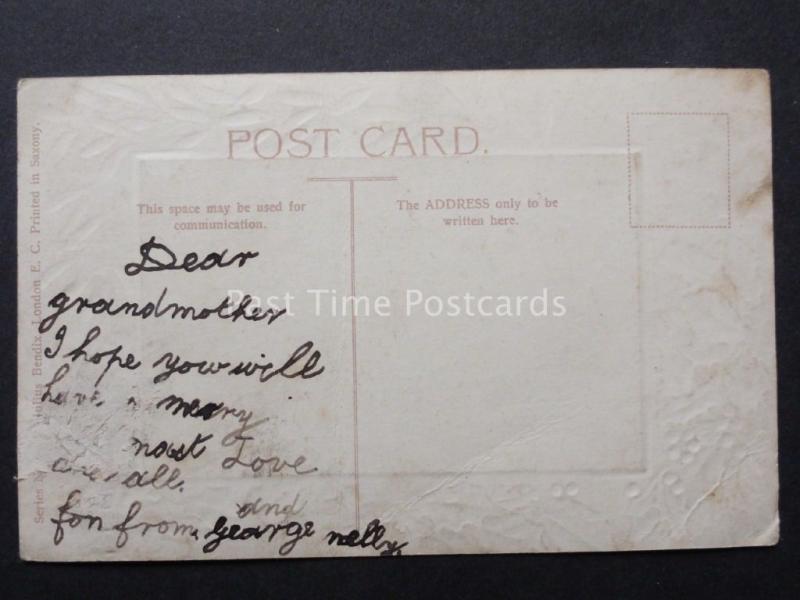 POST CARD.
This space may be used for
communication.
The ADDRESS only to be
written here.
Dear
grandmother
I hope you will
have a merry
Love
all.
and
from George nelly
Past Time Postcards
Julius Bendix, London E. C. Printed in Saxony.
Series